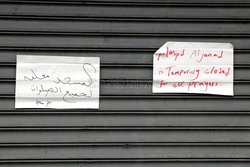 المسجد مغلق
لجميع الصلوات
Masjid Aljamad
is Temporary closed
for all prayers.